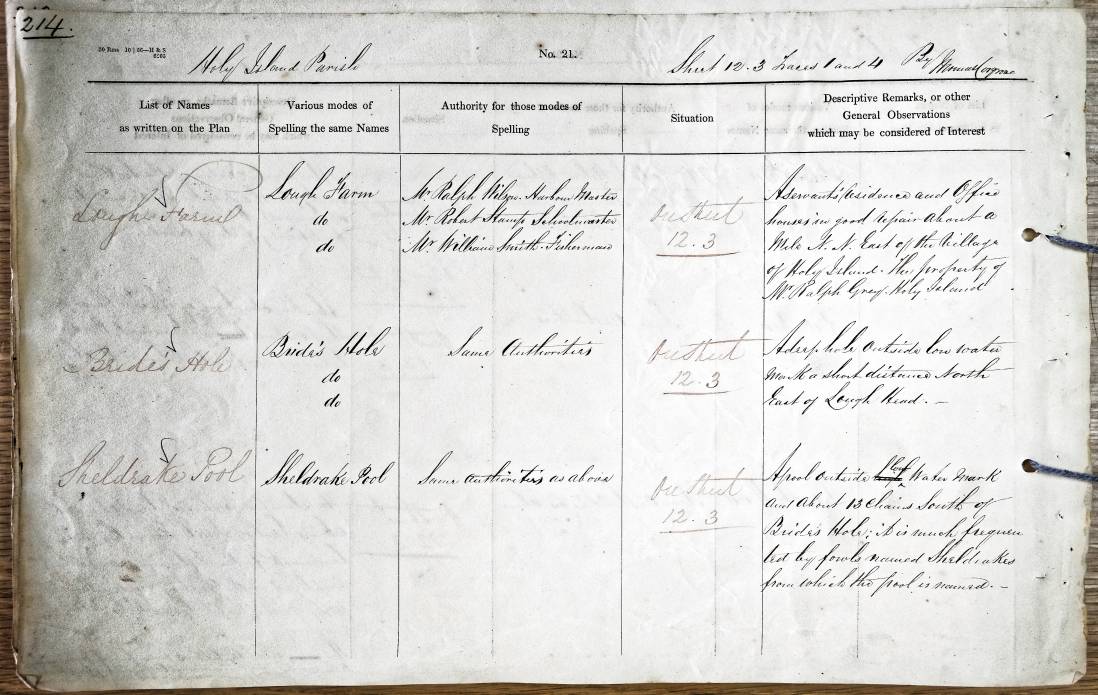 214.
No. 21.
Holy Island Parish
Sheet 12.3 Traces 1 and 4
By Thomas Cognac
List of Names
as written on the Plan
Various modes of
Spelling the same Names
Authority for those modes of
Spelling
Situation
Descriptive Remarks, or other
General Observations
which may be considered of Interest
Lough Farm
Lough Farm
do
do
Mr. Ralph Wilson Harbour Master
Mr Robert Stamp Schoolmaster
Mr. William Smith. Fisherman
On Sheet
12.3
A servants residence and Office
houses in good repair about a
Mile N. N. East of the Village
of Holy Island. The property of
Mr. Ralph Grey. Holy Island
Bride's Hole
Bride's Hole
do
do
Same Authorities
On Sheet
12.3
A deep hole outside low water
mark a short distance North
East of Lough Head. –
Sheldrake Pool
Sheldrake Pool
Same authorities as above
On Sheet
12.3
A pool outside low Water Mark
and about 13 chains South of
Bride's Hole; it is much frequen
ted by fowls named Sheldrakes
from which the pool is named. –